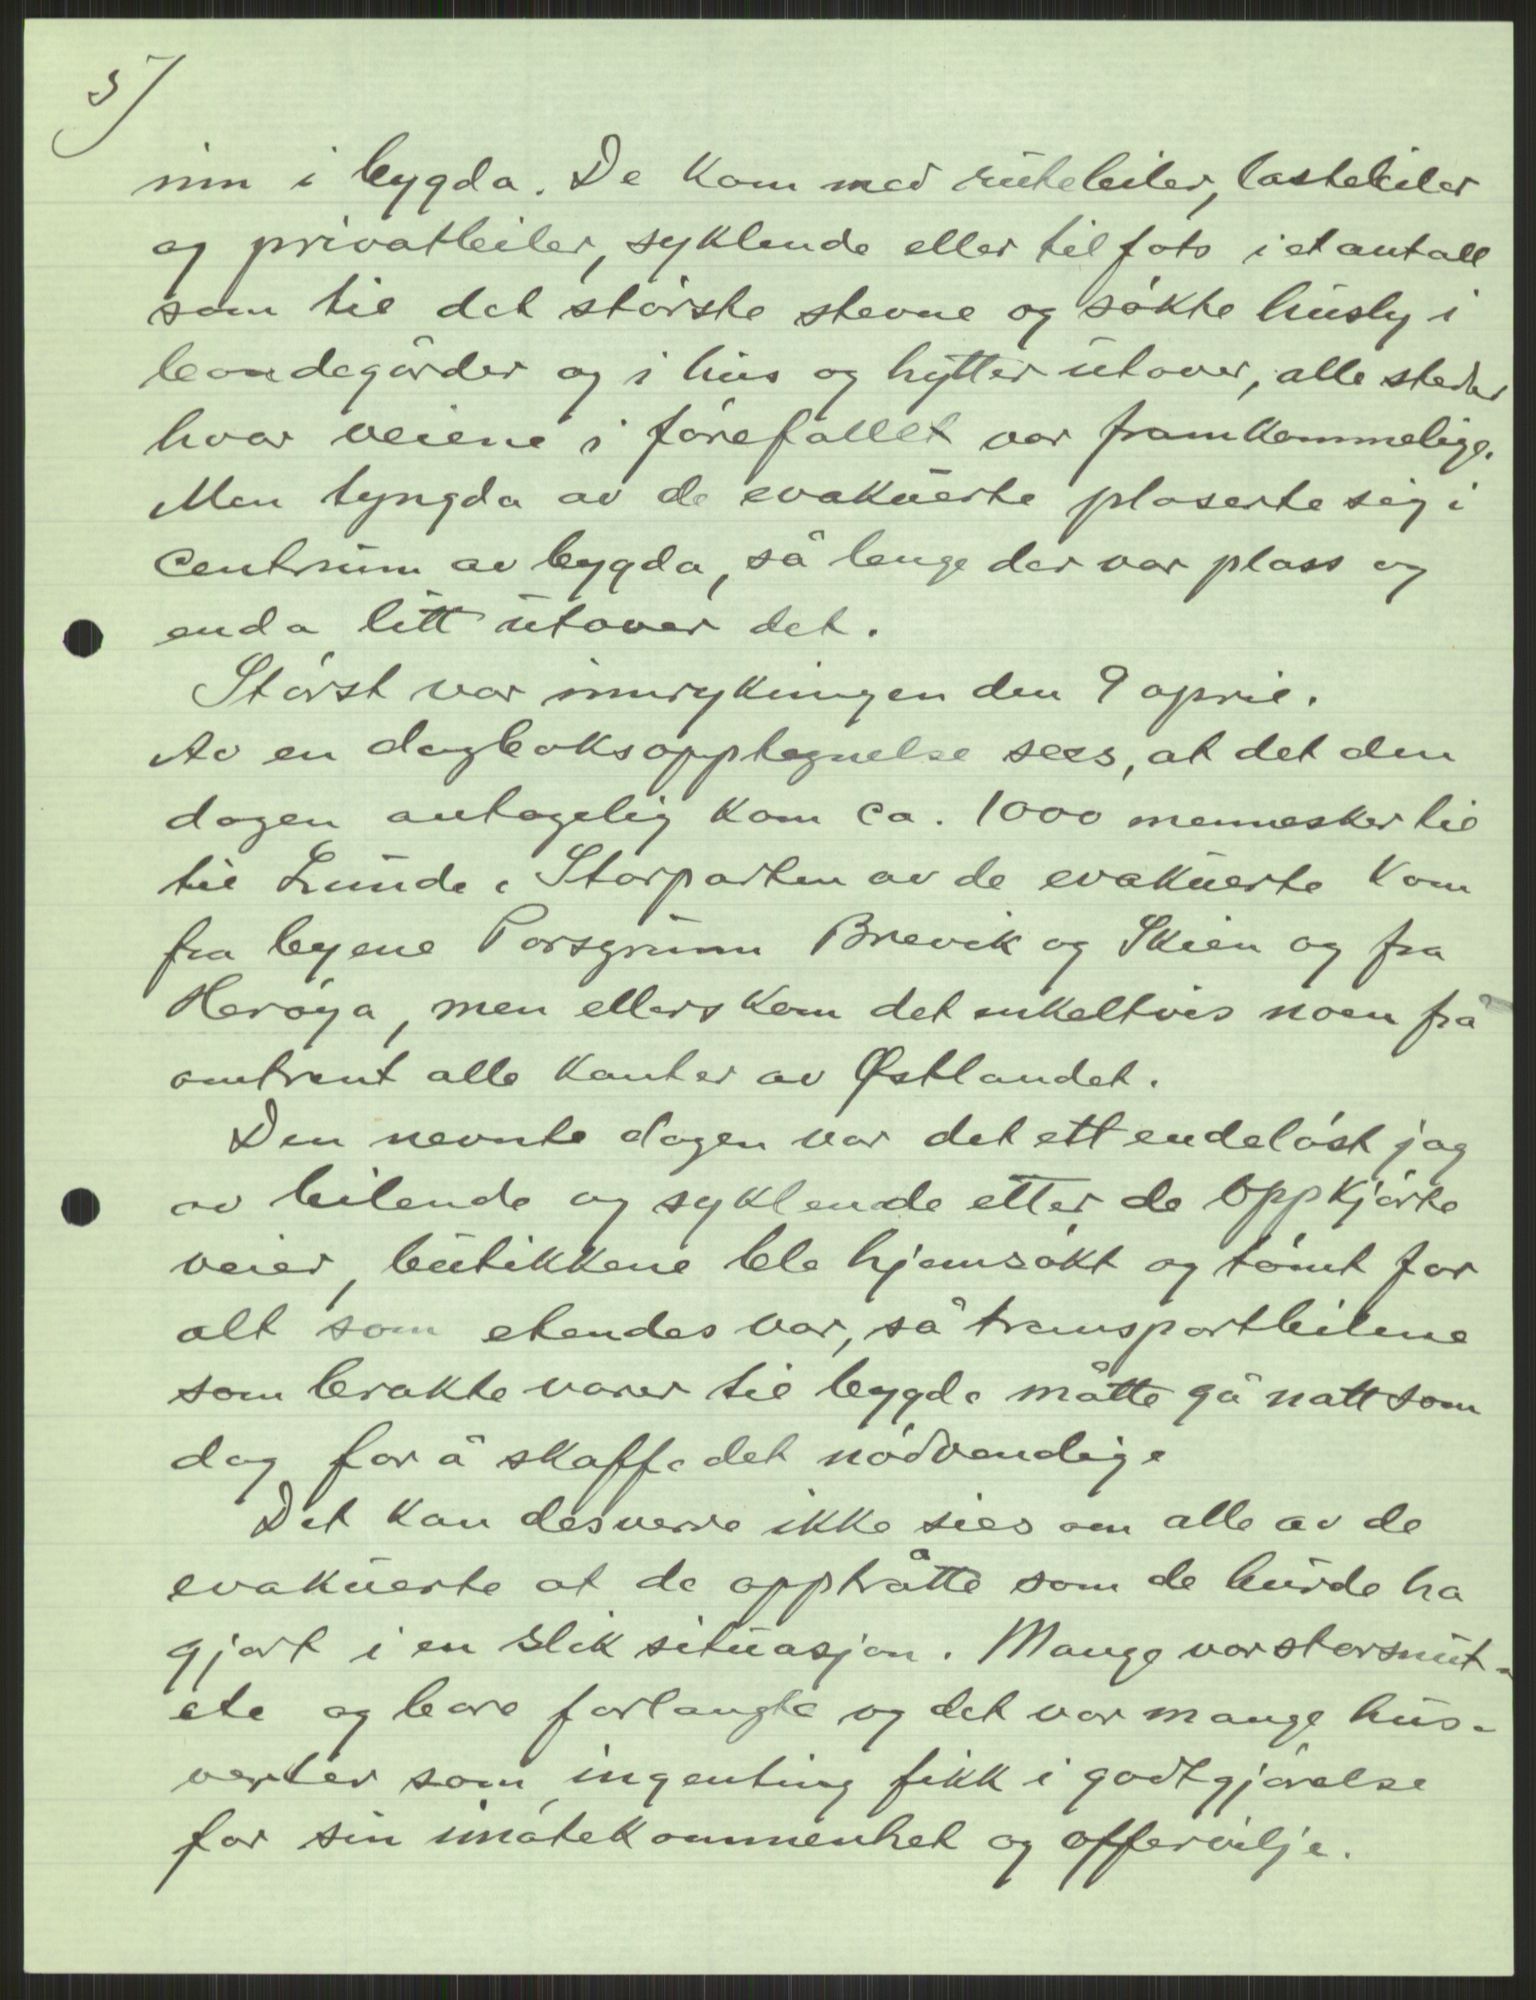 3/
inn i bygda. De kom med rutebiler, lastebiler
og privatbiler, syklende eller til fots i et antall
som til det største stevne og søkte husly i
bondegårder og i hus og hytter utover, alle steder
hvor veiene i førefallet var framkommelige.
Men tyngda av de evakuerte plaserte sig i
centrum av bygda, så lenge der var plass og
enda litt utover det.
Størst var innrykningen den 9 april.
Av en dagboksopptegnelse sees, at det den
dagen antagelig kom ca. 1000 mennesker til
til Lunde. Storparten av de evakuerte kom
fra byene Porsgrunn Brevik og Skien og fra
Herøya, men ellers kom det enkeltvis noen frå
omtrent alle kanter av Østlandet.
Den nevnte dagen var det ett endeløst jag
av bilende og syklende etter de oppkjørte
veier, butikkene ble hjemsøkt og tømt for
alt som etendes var, så transportbilene
som brakte varer til bygda måtte gå natt som
dag for å skaffe det nødvendige
Det kan desverre ikke sies om alle av de
evakuerte at de opptråtte som de burde ha
gjort i en slik situasjon. Mange var storsnut-
ete og bare forlangte og det var mange hus-
verter som ingenting fikk i godtgjørelse
for sin imøtekommenhet og offervilje.